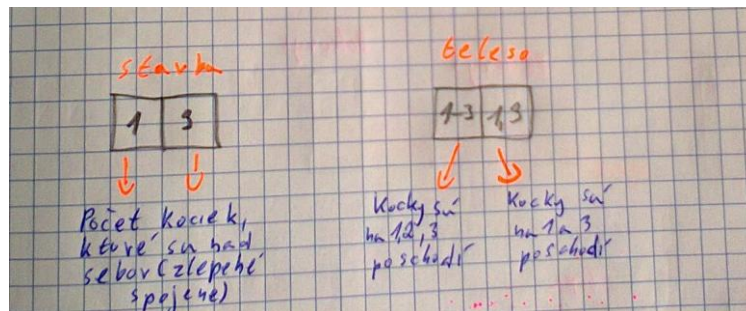 stavba
1 3
Počet kociek,
ktoré su nad
sebou (zlepené
spojene)
teleso
1-3 1,3
Kocky sú
na 1,2,3
poschodí
Kocky sú
na 1 a 3
poschodí